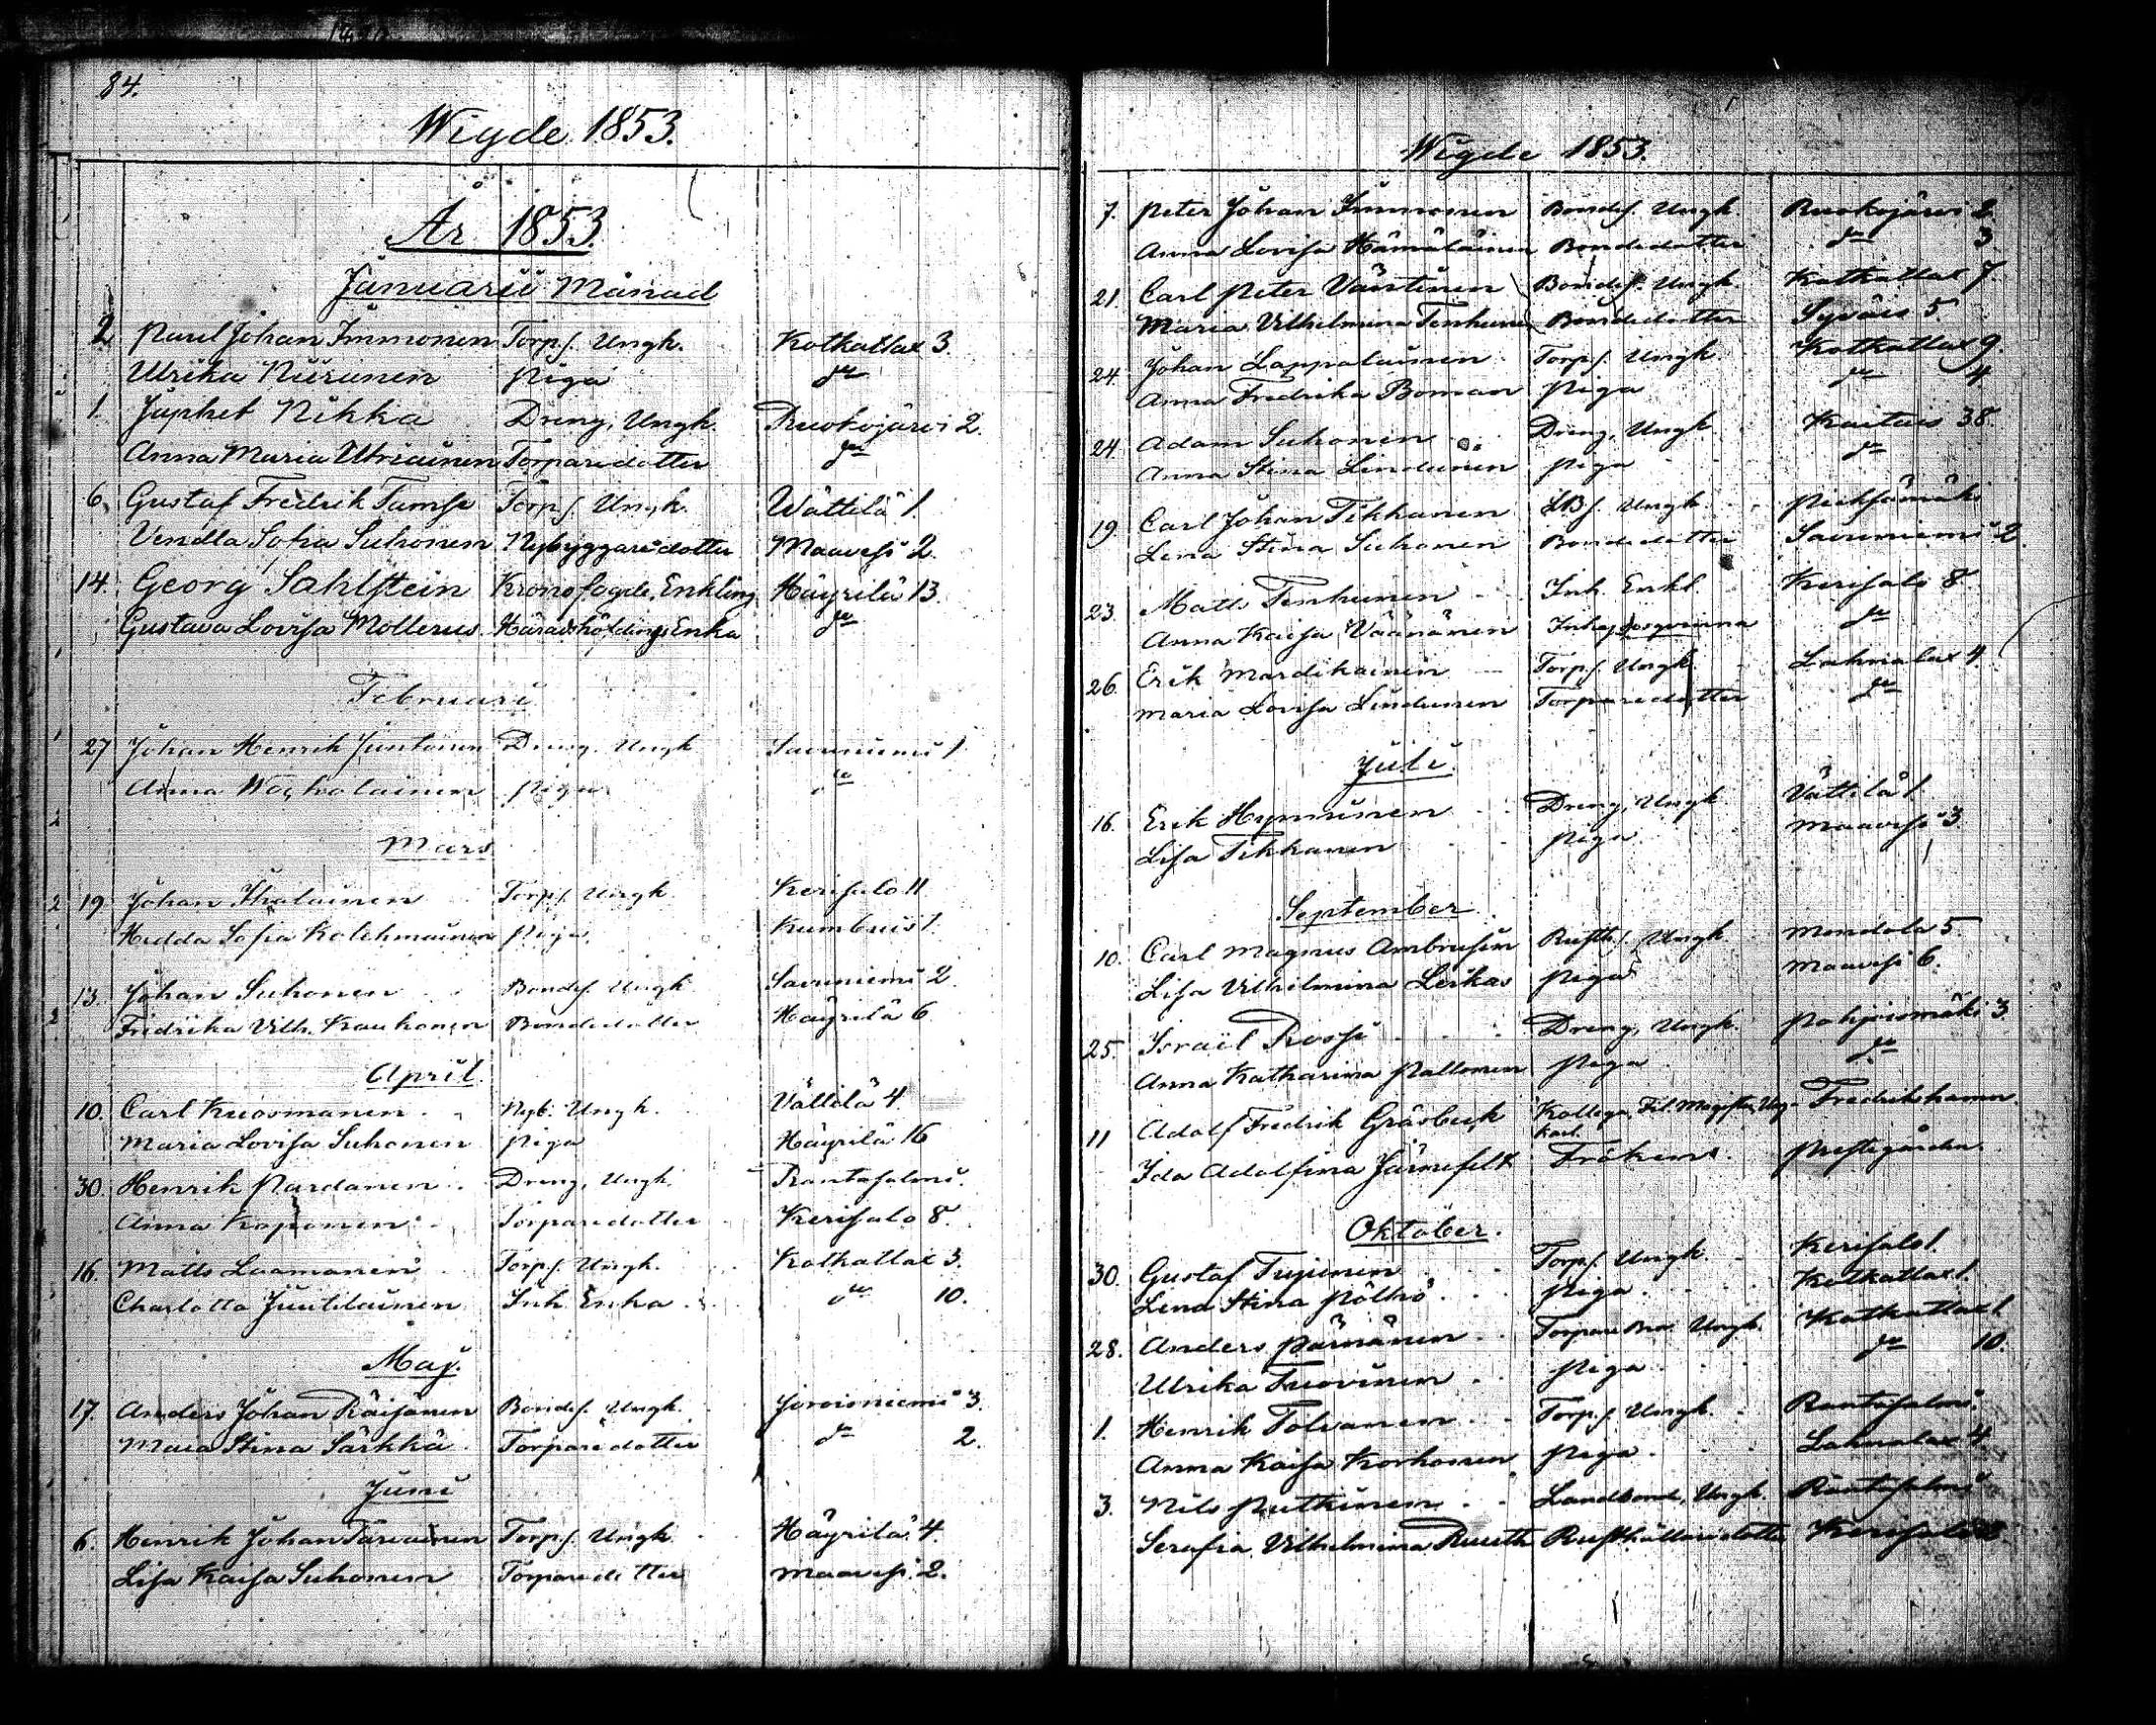 84.
Wigde 1853.
År 1853.
Januarii Månad
2 Paul Johan Immonen Torps. Ungk. Kotkatlax 3
Ulrika Niiranen Piga do
1. Japhet Nikka Dreng, Ungk. Ruokojärvi 2.
Anna Maria Utriainen Torparedotter do
6. Gustaf Fredrik Tamse Torps. Ungk. Wättilä 1.
Vendla Sofia Suhonen Nybyggaredotter Maavesi 2.
14. Georg Sahlstein Kronofogde, Enkling Häyrilä 13.
Gustava Lovisa Mollerus Häradshöfdings Enka do
Februari
27 Johan Henrik Juntonen Dreng, Ungk Savuniemi 1
Anna Piga do
Mars
19 Johan Ihalainen Torps. Ungk Kerisalo 11
Hedda Sofia Kolehmainen Piga Kumbuis 1.
13. Johan Suhonen Bondes. Ungk Savuniemi 2
Fridrika Vilh. Kauhonen Bondedotter Häyrilä 6
April.
10. Carl Kuosmanen Nyb. Ungk. Vättilä 4.
Maria Lovisa Suhonen Piga Häyrilä 16
30. Henrik Pardanen Dreng, Ungk. Rantasalmi.
Anna Koponen Torparedotter Kerisalo 8.
16. Matts Laamanen Torps. Ungk. Kotkatlax 3.
Charlotta Juutilainen Inh. Enka do 10.
Maj.
17. Anders Johan Räisänen Bondes. Ungk. Joroisniemi 3.
Maia Stina Särkkä Torparedotter do 2.
Juni
6. Henrik Johan Tarvainen Torps. Ungk Häyrilä 4.
Lisa Kaisa Suhonen Torparedotter Maavesi 2.
Wigde 1853.
7. Peter Johan Immonen Bondes. Ungk. Ruokojärvi 2.
Anna Lovisa Hämäläinen Bondedotter do 3
21. Carl Peter Väntinen Bondes. Ungk. Kotkatlax 7
Maria Vilhelmina Tenhunen Bondedotter Syväis 5
24. Johan Lappalainen Torps. Ungk. Kotkatlax 9.
Anna Fredrika Boman Piga do 4
24. Adam Suhonen Dreng, Ungk. Kaitais 38.
Anna Stina Lindunen Piga do
19. Carl Johan Tikkanen LBs. Ungk. Pieksämäki
Lena Stina Suhonen Bondedotter Savuniemi 2
23. Matts Tenhunen Inh. Enkl. Kerisalo 8
Anna Kaisa Väänänen Inhysesqvinna do
26. Erik Mardikainen Torps. Ungk. Lahnalax 4
Maria Lovisa Lindunen Torparedotter do
Juli.
16. Erik Hynninen Dreng, Ungk. Vättilä 1.
Lisa Tikkanen Piga Maavesi 3.
September
10. Carl Magnus Ambrusin Rusths. Ungk. Mondola 5.
Lisa Vilhelmina Leikas Piga Maavesi 6.
25. Israël Rossi Dreng, Ungk. Pohjoismäki 3
Anna Katharina Pallonen Piga do
11 Adolf Fredrik Gräsbeck Kollega, Fil. Magister, Ung- Fredrikshamn
karl.
Ida Adolfina Järnefelt Fröken Prestgården
Oktober.
30. Gustaf Turunen Torps. Ungk. Kerisalo 1.
Lena Stina Pölhö Piga Kotkatlax 1.
28. Anders Pärnänen Torpare Bror Ungk. Kotkatlax 1.
Ulrika Tuovinen Piga do 10.
1. Henrik Tolvanen Torps. Ungk. Rantasalmi.
Anna Kaisa Korhonen Piga Lahnalax 4.
3. Nils Putkinen Landbond, Ungk. Rantasalmi
Serafia Vilhelmina Ruuth Rusthållaredotter Kerisalo